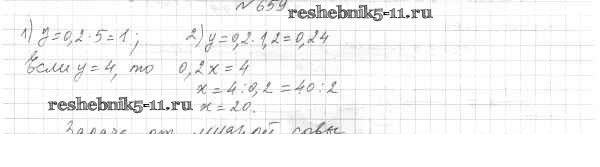 № 659
reshebnik5-11.ru
1) y=0,2·5=1; 2) y=0,2·1,2=0,24
Если y=4, то 0,2x=4
x=4:0,2=40:2
reshebnik5-11.ru
x=20.
Задача от мудрой совы